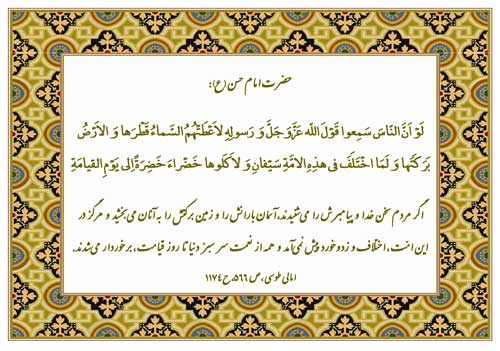 حضرت امام حسن (ع):
لَوْ اَنَّ النّاسَ سَمِعوا قَوْلَ اللّه عَزَّوَجَلَّ وَ رَسولِهِ لاَعْطَتْهُمُ السَّماءُ قَطْرَها وَ الاَرْضُ
بَرَكَتَها وَ لَمَا اخْتَلَفَ فى هذِهِ الاُمَّةِ سَيْفانِ وَ لاَكَلوها خَضْراءَ خَضِرَةً اِلى يَوْمِ القيامَةِ
اگر مردم سخن خدا و پیامبرش را می‌شنیدند، آسمان بارانش را و زمین برکتش را به آنان می‌بخشید و هرگز در
این امت، اختلاف و زد و خورد پیش نمی‌آمد و همه از نعمت سرسبز دنیا تا روز قیامت، برخوردار می‌شدند.
امالی طوسی، ص ۵۶۶، ح ۱۱۷۴